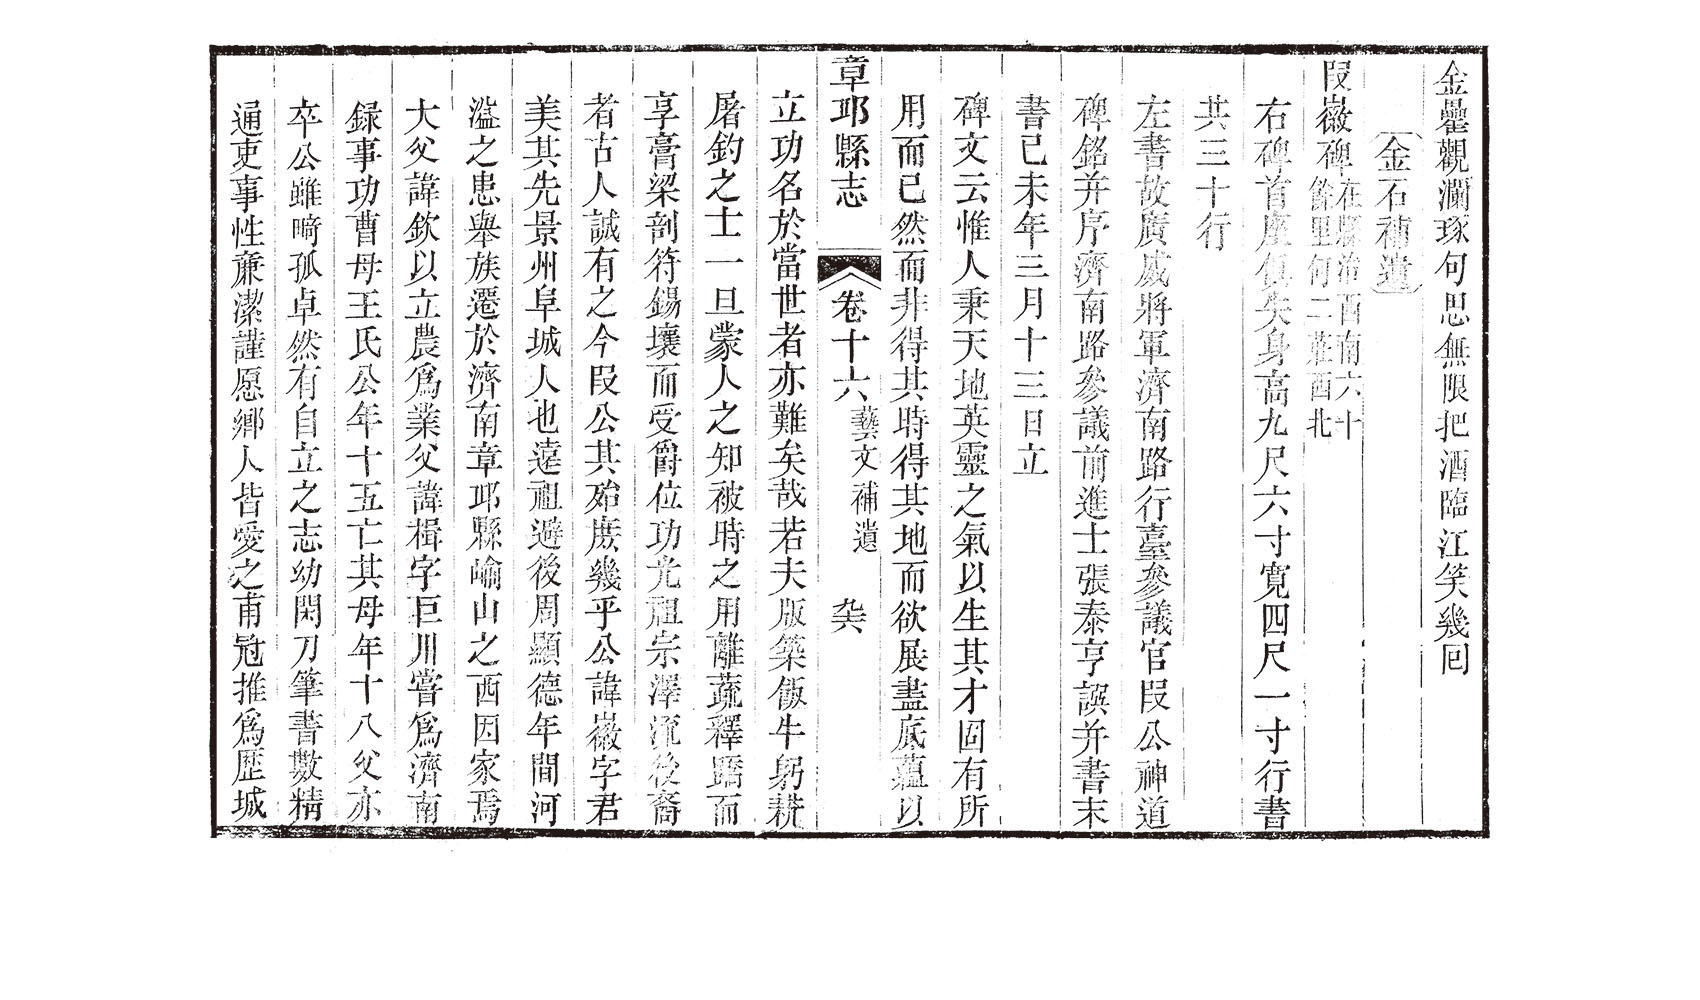 金罍觀瀾琢句思無限把酒臨江笑幾回
金石補遺
段嶶碑在縣治西南六十
餘里何二莊酉北
右碑首座俱失身高九尺六寸寬四尺一寸行書
共三十行
左書故廣威將軍濟南路行臺參議官段公神道
碑銘并序濟南路參議前進士張泰亨譔并書末
書己未年三月十三日立
碑文云惟人秉天地英靈之氣以生其才固有所
用而已然而非得其時得其地而欲展盡底蘊以
章邱縣志 卷十六藝文補遺
立功名於當世者亦難矣哉若夫版築飯牛躬耕
屠釣之士一旦蒙人之知被時之用離蔬釋蹻而
享膏梁剖符錫壤而受爵位功光祖宗澤流後裔
者古人誠有之今段公其殆庶幾乎公諱嶶字君
美其先景州阜城人也遠祖避後周顯德年間河
溢之患舉族遷於濟南章邱縣崳山之西因家焉
大父諱欽以立農爲業父諱楫字巨川嘗爲濟南
録事功曹母王氏公年十五亡其母年十八父亦
卒公雖﨑孤卓然有自立之志幼閑刀筆書數精
通吏事性亷潔謹愿鄉人皆愛之甫冠推爲歷城